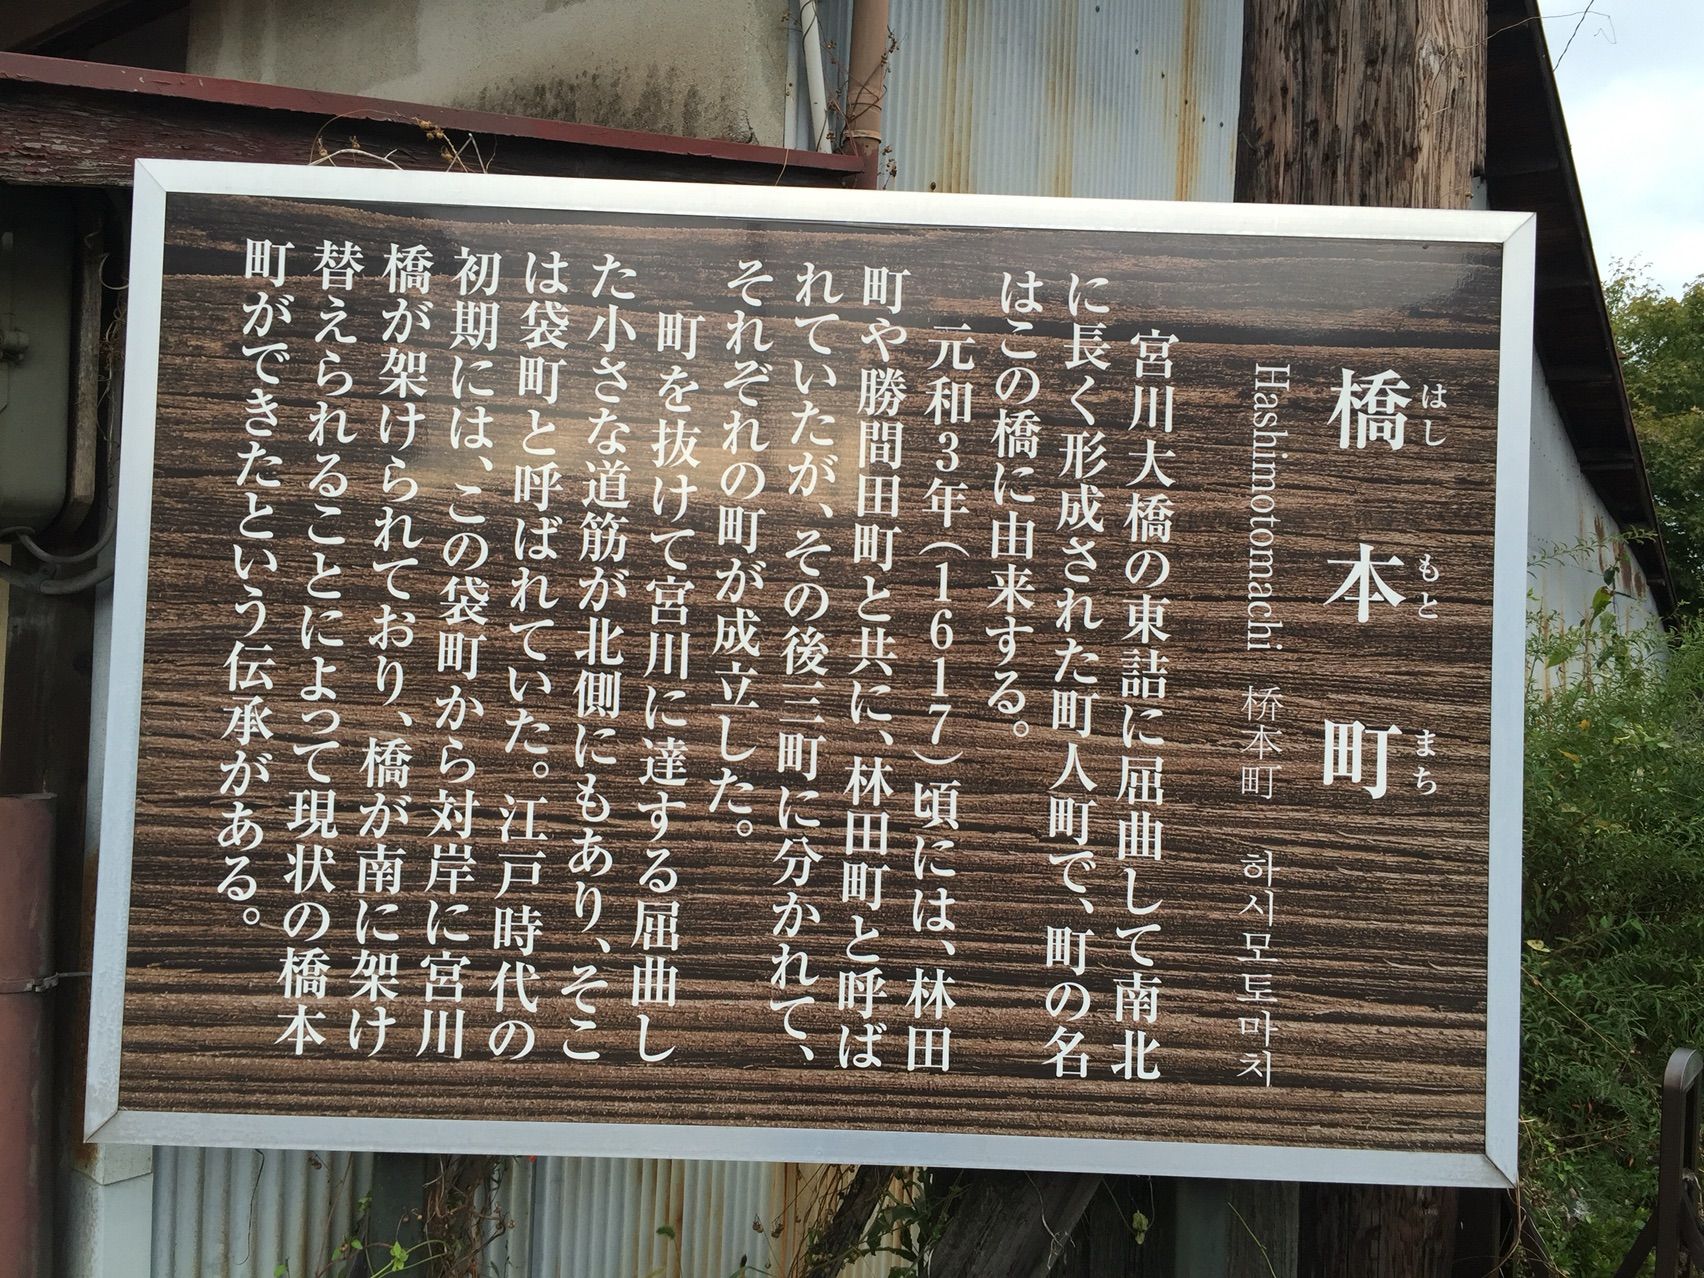 橋本町
はし もと まち
Hashimotomachi 桥本町 하시모토마치
宮川大橋の東詰に屈曲して南北
に長く形成された町人町で、町の名
はこの橋に由来する。
元和3年（1617）頃には、林田
町や勝間田町と共に、林田町と呼ば
れていたが、その後三町に分かれて、
それぞれの町が成立した。
町を抜けて宮川に達する屈曲し
た小さな道筋が北側にもあり、そこ
は袋町と呼ばれていた。江戸時代の
初期には、この袋町から対岸に宮川
橋が架けられており、橋が南に架け
替えられることによって現状の橋本
町ができたという伝承がある。